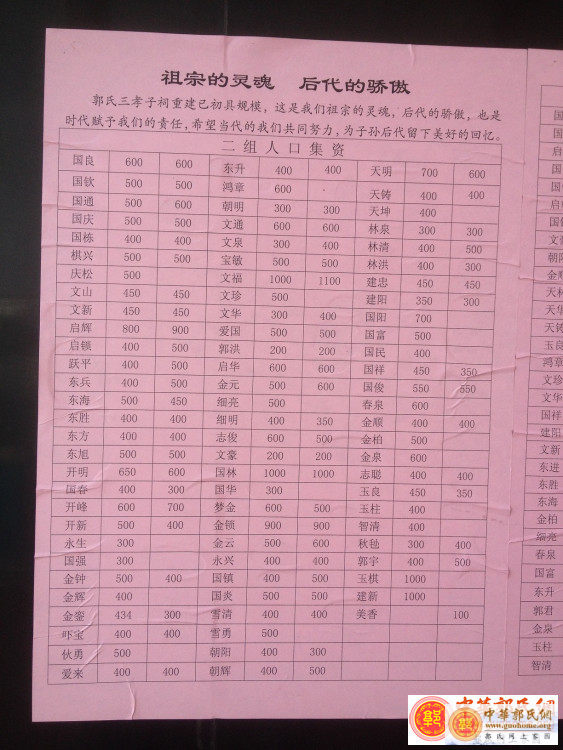 祖宗的灵魂 后代的骄傲
郭氏三孝子祠重建已初具规模，这是我们祖宗的灵魂，后代的骄傲，也是
时代赋予我们的责任，希望当代的我们共同努力，为子孙后代留下美好的回忆。
二组人口集资
国良 600 600 东升 400 400 天明 700 600
国钦 500 500 鸿章 600 天铸 400 400
国通 500 600 朝明 300 300 天坤 400
国庆 500 500 文通 600 600 林泉 300 300
国栋 400 400 文泉 300 400 林清 400 500
棋兴 500 500 宝敏 500 500 林洪 400 300
庆松 500 文福 1000 1100 建忠 450 450
文山 450 450 文珍 500 建阳 350 300
文新 450 450 文华 300 400 国阳 700
启辉 800 900 爱国 500 500 国富 500
启锁 400 500 郭洪 200 200 国民 400
跃平 400 500 启华 600 600 国祥 450 350
东兵 400 500 金元 500 600 国俊 550 550
东海 500 450 细亮 500 春泉 600
东胜 400 400 细明 400 350 金顺 400 400
东方 400 400 志俊 600 500 金柏 500
东旭 500 500 文豪 200 200 金泉 600
开明 650 600 国林 1000 1000 志聪 400 400
国春 400 300 国华 300 玉良 450 350
开峰 600 700 梦金 600 500 玉柱 400
开新 500 400 金锁 900 900 智清 400
永生 300 金云 500 600 秋毡 300 400
国强 300 永兴 400 400 郭宇 400 500
金钟 500 400 国镇 400 500 玉棋 1000
金辉 400 国炎 500 500 建新 1000
金銮 434 300 雪清 400 400 美香 100
吓宝 400 400 雪勇 500
伙勇 500 朝阳 400 300
爱来 400 400 朝辉 400 500
文珍
文华
国祥
建阳
文新
东进
东胜
东海
金柏
细亮
春泉
国富
东升
郭君
金泉
玉柱
智清
中華郭氏網
www.guohome.org
郭氏网上家园